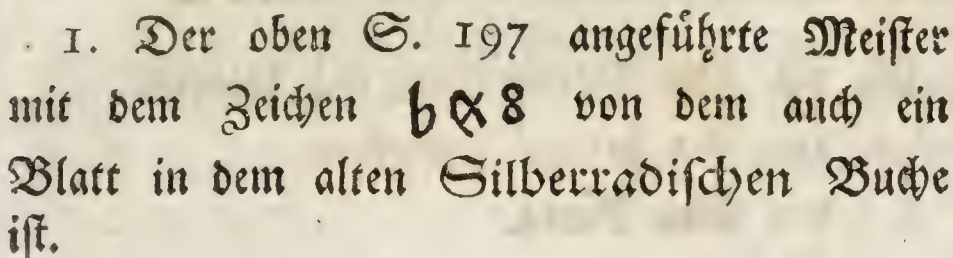 1. Der oben S. 197 angeführte Meister
mit dem Zeichen b x 8 von dem auch ein
Blatt in dem alten Silberradischen Buche
ist.